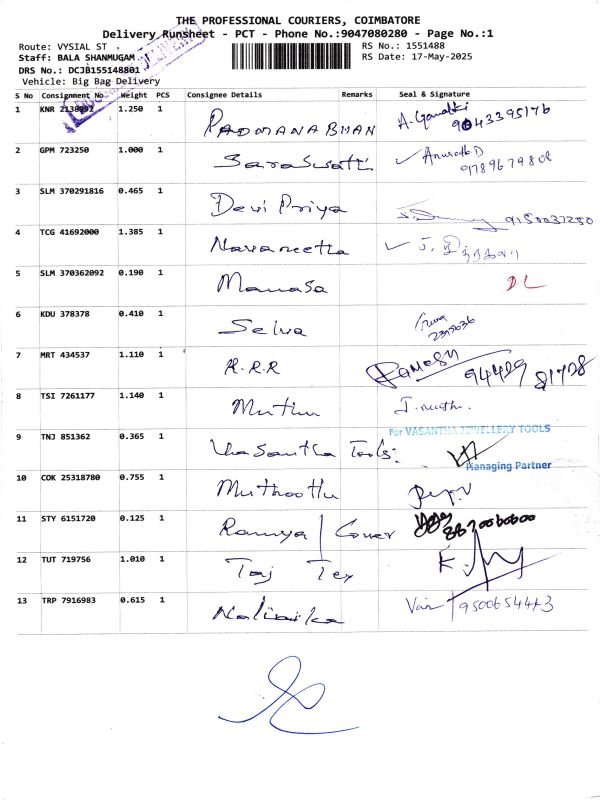 THE PROFESSIONAL COURIERS, COIMBATORE
Delivery Runsheet - PCT - Phone No.:9047080280 - Page No.:1
Route: VYSIAL ST .
RS No.: 1551488
Staff: BALA SHANMUGAM.
RS Date: 17-May-2025
DRS No.: DCJB155148801
Vehicle: Big Bag Delivery
S No Consignment No. Weight PCS Consignee Details Remarks Seal & Signature
1 KNR 2138092 1.250 1 PADMANABHAN A. Gomathi 9043395176
2 GPM 723250 1.000 1 Saraswathi 9789679808
3 SLM 370291816 0.465 1 Devi Priya 9150037250
4 TCG 41692000 1.385 1 Navaneetha
5 SLM 370362092 0.190 1 Manasa DL
6 KDU 378378 0.410 1 Selva
7 MRT 434537 1.110 1 R.R.R RAMESH 94429 81728
8 TSI 7261177 1.140 1 Muthu
9 TNJ 851362 0.365 1 Vhasantha Tools.
For VASANTHA JEWELLERY TOOLS
Managing Partner
10 COK 25318780 0.755 1 Muthoottu
11 STY 6151720 0.125 1 Ramya / Cover 8870060600
12 TUT 719756 1.010 1 Taj Tex
13 TRP 7916983 0.615 1